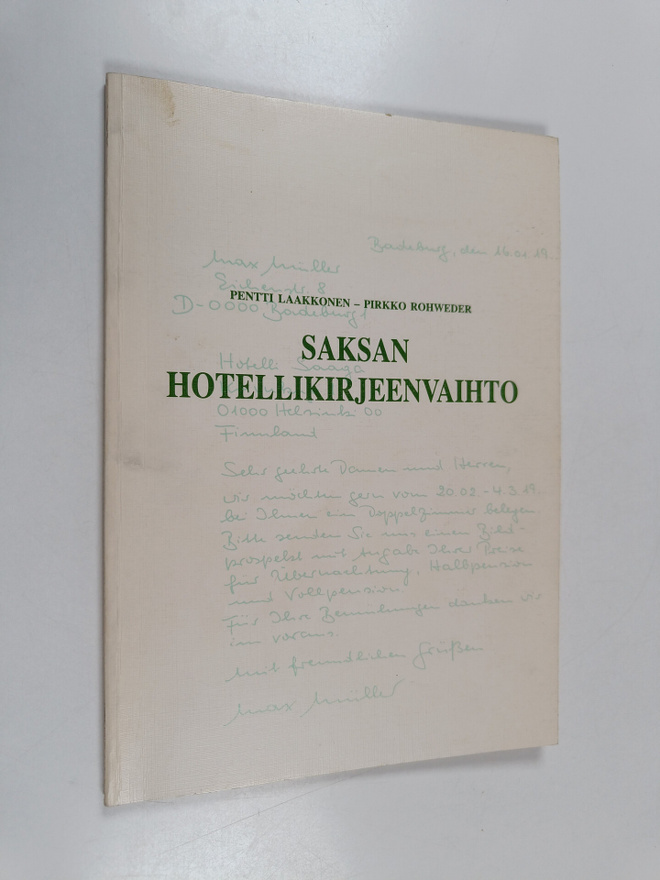 Badeburg, den 16.01.19..
Max Müller
Eichenstr. 8
PENTTI LAAKKONEN – PIRKKO ROHWEDER
D-0000 Badeburg 1
SAKSAN
Hotelli Saaga
HOTELLIKIRJEENVAIHTO
01000 Helsinki 00
Finnland
Sehr geehrte Damen und Herren,
wir möchten gern vom 20.02.-4.3.19..
bei Ihnen ein Doppelzimmer belegen.
Bitte senden Sie uns einen Bild-
prospekt mit Angabe Ihrer Preise
für Übernachtung, Halbpension
und Vollpension.
Für Ihre Bemühungen danken wir
im voraus.
Mit freundlichen Grüßen
Max Müller